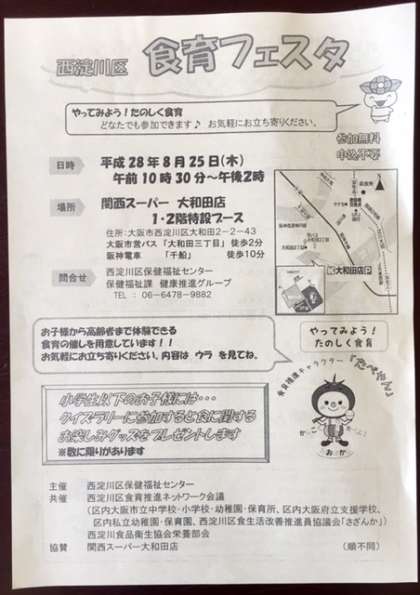 西淀川区 食育フェスタ
やってみよう！たのしく食育
どなたでも参加できます♪ お気軽にお立ち寄りください。
参加無料
申込不要
日時 平成28年8月25日(木)
午前10時30分～午後2時
場所 関西スーパー 大和田店
1・2階特設ブース
住所：大阪市西淀川区大和田2－2－43
大阪市営バス「大和田三丁目」徒歩2分
阪神電車 「千船」 徒歩10分
K大和田店P
問合せ 西淀川区保健福祉センター
保健福祉課 健康推進グループ
TEL ： 06-6478-9882
お子様から高齢者まで体験できる
食育の催しを用意しています！！
お気軽にお立ち寄りください。内容は ウラ を見てね。
やってみよう！
たのしく食育
食育推進キャラクター「たべやん」
小学生以下のお子様には…
クイズラリーに参加すると食に関する
お楽しみグッズをプレゼントします
※数に限りがあります
主催 西淀川区保健福祉センター
共催 西淀川区食育推進ネットワーク会議
（区内大阪市立中学校・小学校・幼稚園・保育所、区内大阪府立支援学校、
区内私立幼稚園・保育園、西淀川区食生活改善推進員協議会「さざんか」）
西淀川食品衛生協会栄養部会
協賛 関西スーパー大和田店 （順不同）